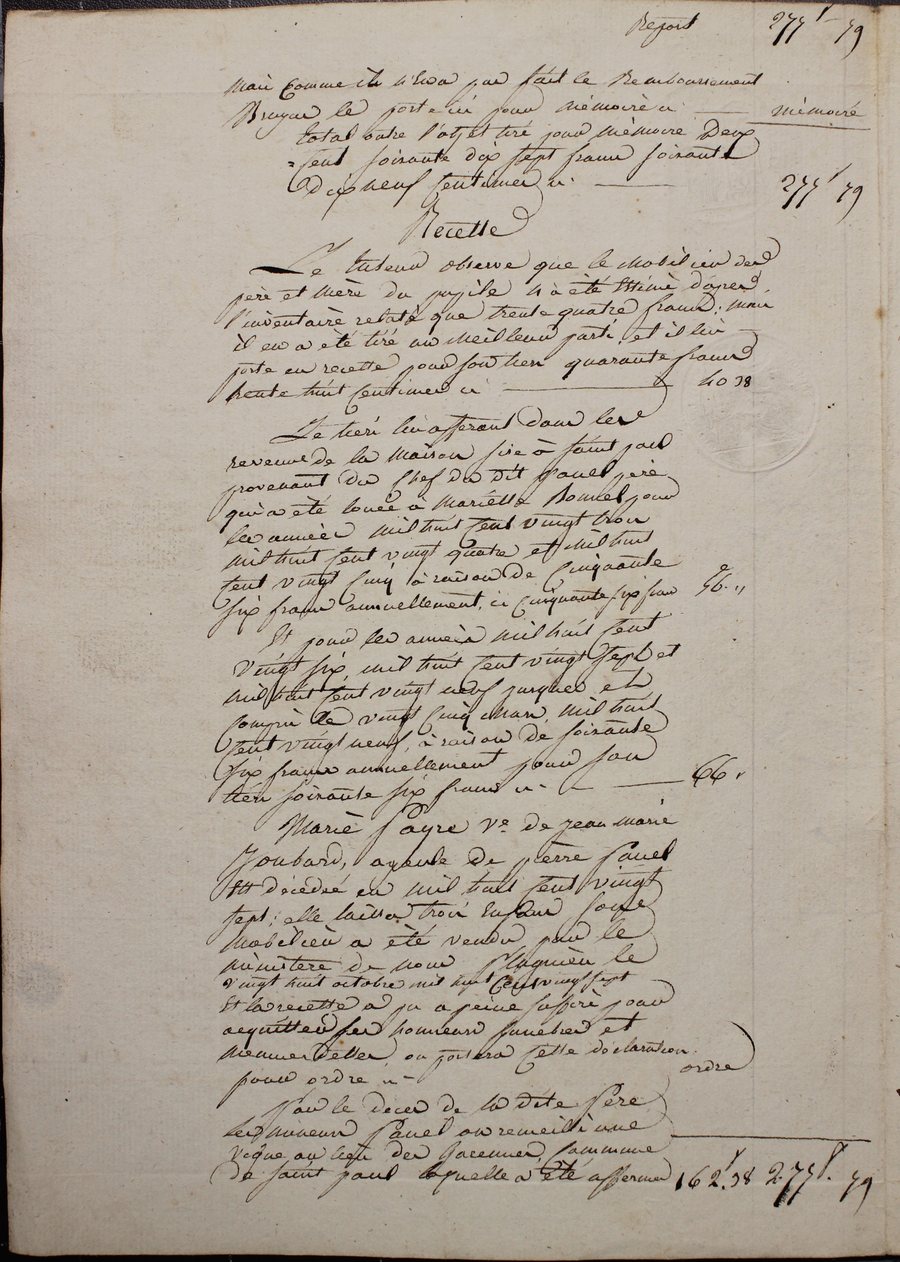 Report 277f 79
mais comme il n'en a pas fait le Remboursement
Bruyas le porte ici pour mémoire ci mémoire
total outre l'objet tiré pour mémoire Deux
cent soixante dix sept francs soixante
Dix neuf centimes ci 277f 79
Recette
Le tuteur observe que le mobilier des
père et mère du pupile n'a été Estimé d'après
l'inventaire relaté que trente quatre francs; mais
il en a été tiré un meilleur parti, et il lui
porte en recette pour son tiers quarante francs
trente huit centimes ci 40 38
Le tiers lui afferant dans les
revenus de la maison sise à saint paul
provenant du chef du dit père
qui a été louée à Mariette Bonnel pour
les années mil huit cent vingt trois
mil huit cent vingt quatre et mil huit
cent vingt cinq à raison de cinquante
six francs annuellement, ci cinquante six francs 56. "
Et pour les années mil huit cent
vingt six, mil huit cent vingt sept et
mil huit cent vingt neuf jusques et
compris le vingt cinq mars, mil huit
cent vingt neuf, à raison de soixante
six francs annuellement pour son
tiers soixante six francs ci 66 "
Marie Ve. de jean marie
Joubard, ayeule de pierre
Est décédée en mil huit cent vingt
sept; elle laissa trois Enfans
mobilier a été vendu par le
ministere de nous le
vingt huit octobre mil huit cent vingt sept
Et la recette a pu a peine suffire pour
acquitter ses honneurs funebres et
menues dettes, on portera cette déclaration
pour ordre ci ordre
Par le deces de la dite
les mineurs on recueilli une
vigne au lieu des commune
de saint paul laquelle a été affermée 162f. 38 277f. 79